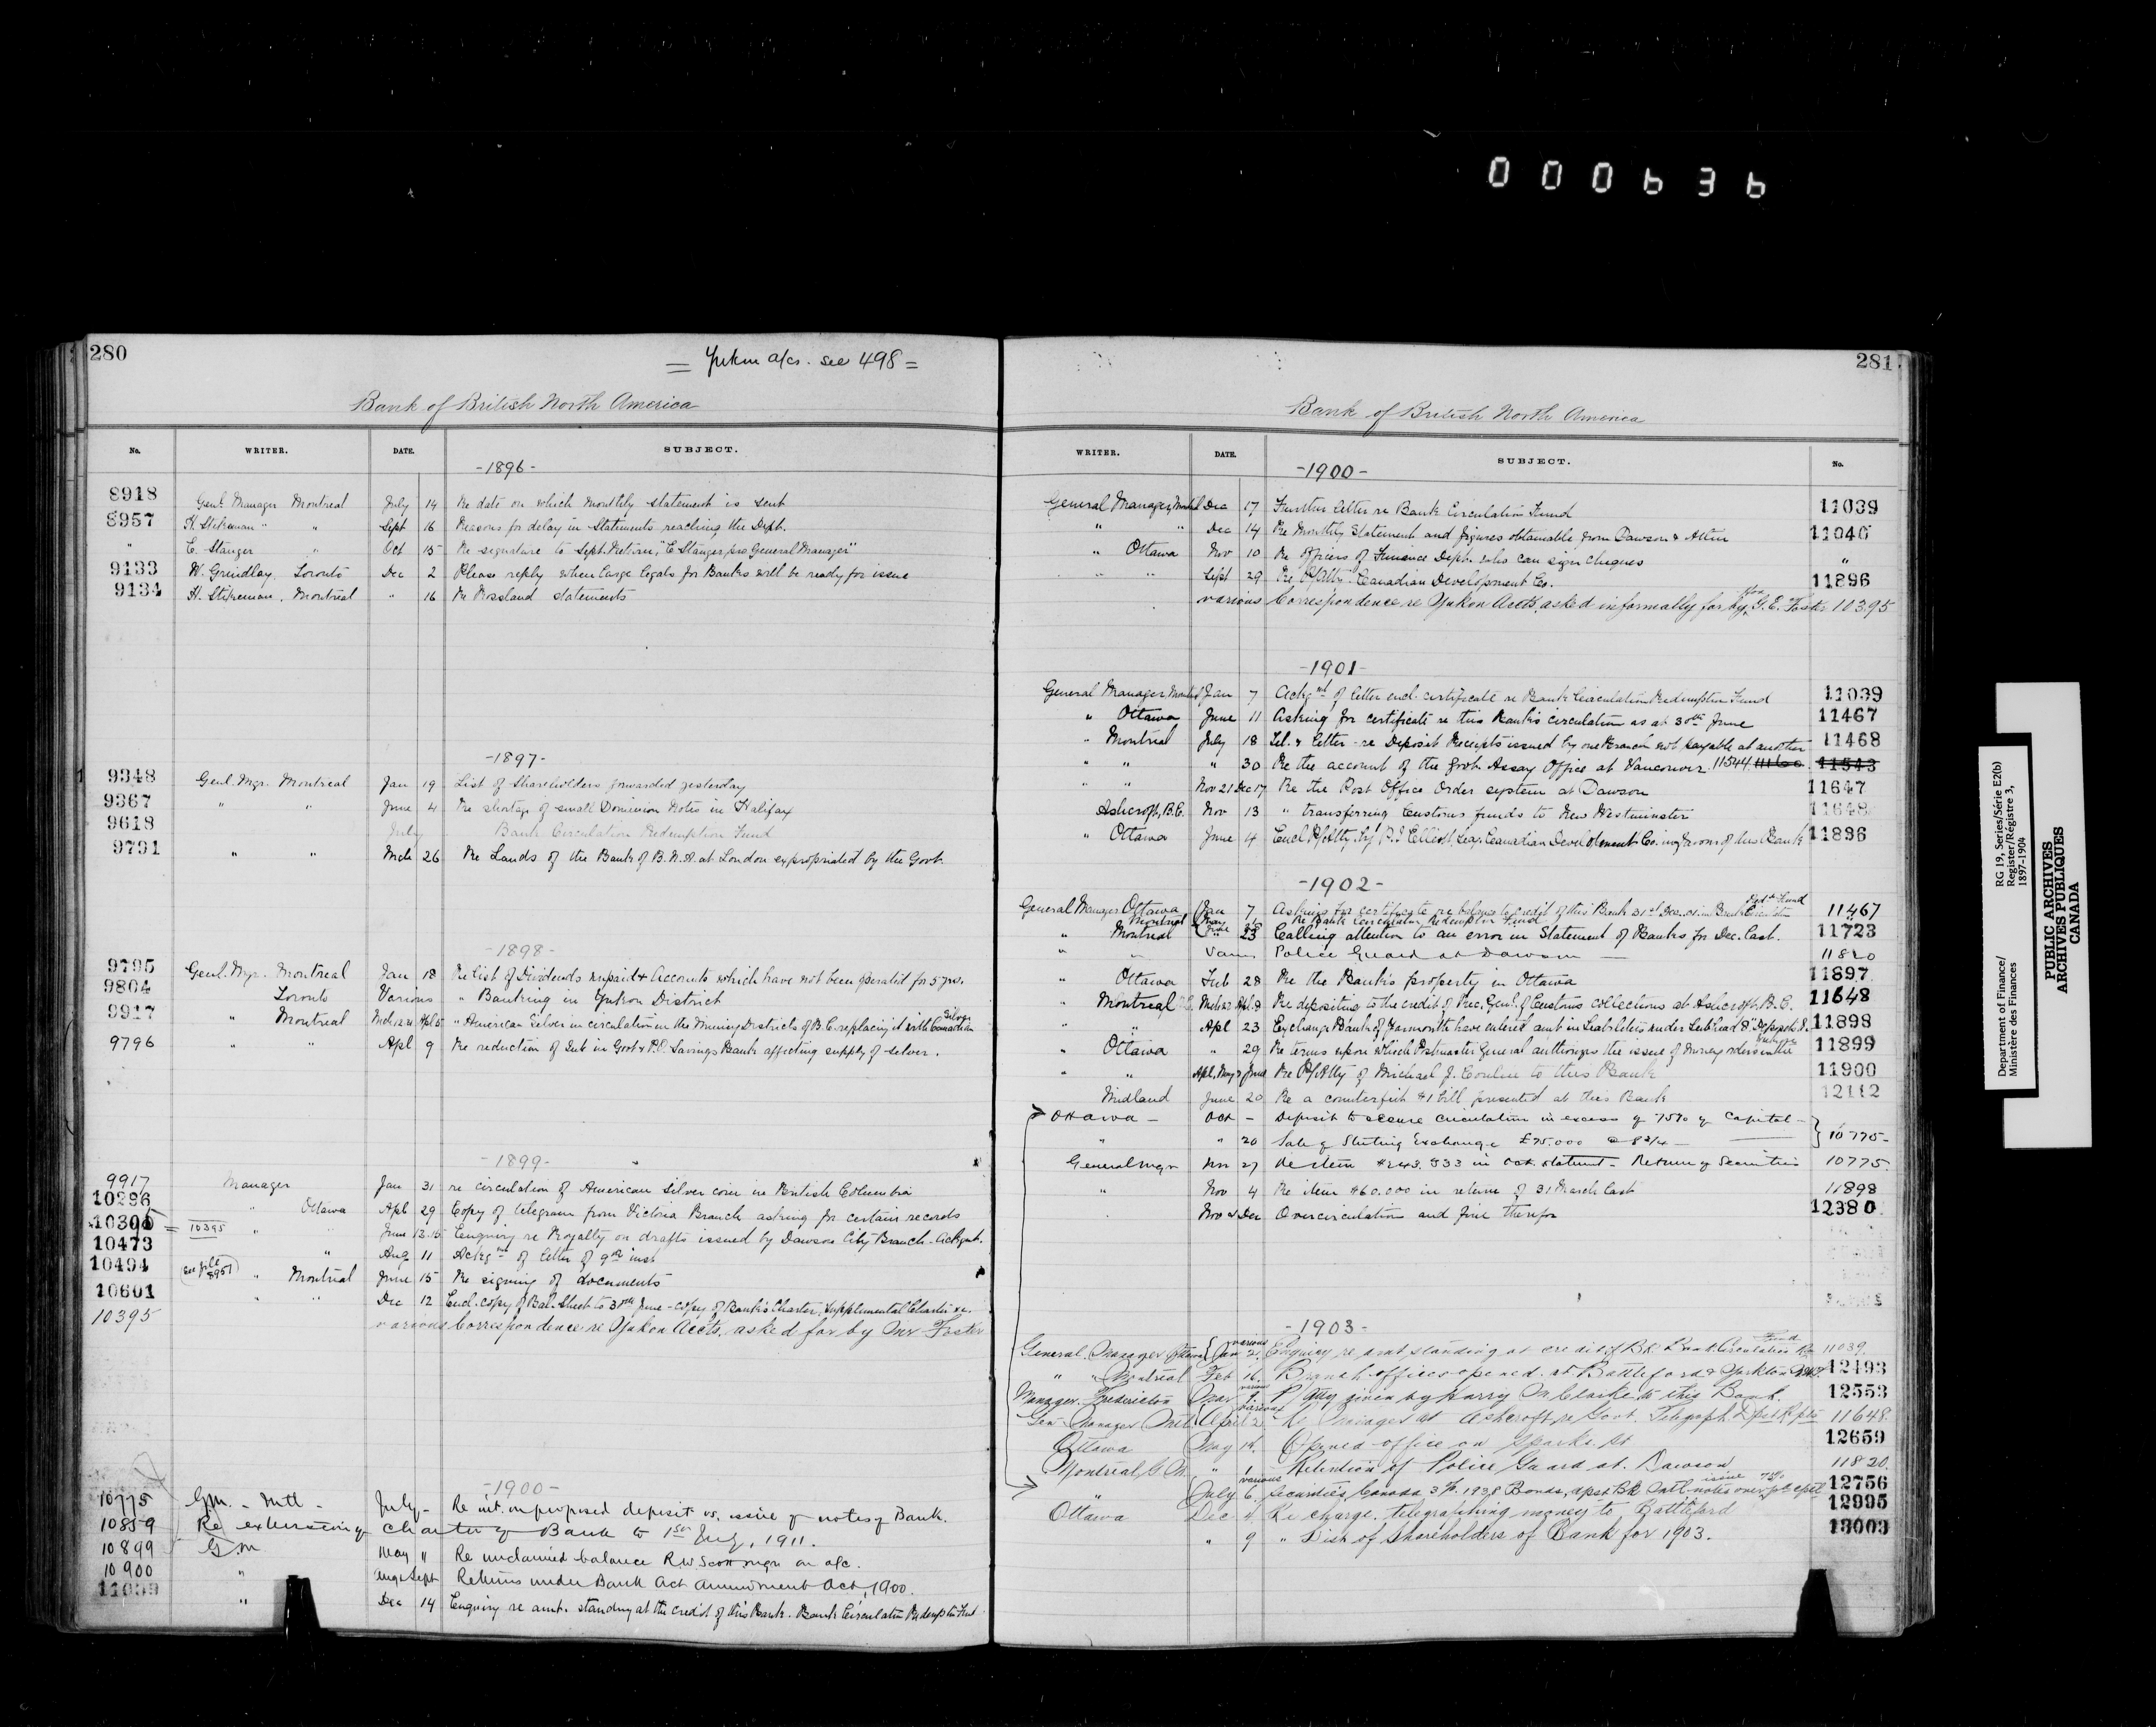 000636
280
= Yukon a/cs. see 498 =
Bank of British North America
No. WRITER. DATE. SUBJECT.
-1896-
8918 Genl. Manager Montreal July 14 Re date on which monthly statement is sent
8957 H. Stikeman " " Sept 16 Reasons for delay in Statements reaching the Dept.
" E. Stanger " Oct 15 Re signature to Sept. Return, "E Stanger, pro General Manager"
9133 W. Grindlay, Toronto Dec 2 Please reply when large legals for Banks will be ready for issue
9134 H. Stikeman, Montreal " 16 Re Rossland statements
-1897-
9348 Genl. Mgr. Montreal Jan 19 List of Shareholders forwarded yesterday
9367 " " June 4 Re shortage of small Dominion Notes in Halifax
9618 July Bank Circulation Redemption Fund
9791 " " Mch 26 Re Lands of the Bank of B.N.A. at London expropriated by the Govt.
-1898-
9795 Genl. Mgr. Montreal Jan 18 Re List of Dividends unpaid & Accounts which have not been operated for 5 yrs.
9804 Toronto Various " Banking in Yukon District
9917 " Montreal Mch 12.21 Apl 5 " American Silver in circulation in the Mining Districts of B.C. replacing it with Canadian Silver
9796 " " Apl 9 Re reduction of Int in Govt & P.O. Savings Bank affecting supply of silver.
-1899-
9917 Manager Jan 31 re circulation of American silver coin in British Columbia
10296 " Ottawa Apl 29 Copy of telegram from Victoria Branch asking for certain records
10396 = 10395 " " June 13.15 Enquiry re Royalty on drafts issued by Dawson City Branch. Ackgmt.
10473 " Aug 11 Ackgmt of letter of 9th inst
10494 (see file 8957) " Montreal June 15 Re signing of documents
10601 " " Dec 12 Encl. copy of Bal. Sheet to 30th June - copy of Bank's Charter, Supplemental Charter &c.
10395 various Correspondence re Yukon Accts. asked for by Mr Foster
-1900-
10775 G.M. - Mtl - July - Re int. on proposed deposit vs. issue of notes of Bank.
10859 Re extension of Charter of Bank to 1st July, 1911.
10899 G.M May " Re unclaimed balance R.W. Scott mgr on a/c.
10900 " Aug & Sept Returns under Bank Act Amendment Act, 1900.
11039 " Dec 14 Enquiry re amt. standing at the credit of this Bank. Bank Circulation Redemption Fund
281
Bank of British North America
WRITER. DATE. SUBJECT. No.
-1900-
General Manager, Montreal Dec 17 Further letter re Bank Circulation Fund 11039
" " Dec 14 Re Monthly Statement and figures obtainable from Dawson & Atlin 11040
" Ottawa Nov 10 Re officers of Finance Dept. who can sign cheques "
" " Sept 29 Re P/Atty. Canadian Development Co. 11896
various Correspondence re Yukon Accts. asked informally for by Hon G. E. Foster 10395
-1901-
General Manager Montreal Jan 7 Ackgmt of letter encl. certificate re Bank Circulation Redemption Fund 11039
" Ottawa June 11 Asking for certificate re this Bank's circulation as at 30th June 11467
" Montreal July 18 Tel. & letter - re Deposit Receipts issued by one Branch not payable at another 11468
" " " 30 Re the account of the Govt. Assay Office at Vancouver 11544 11543
" " Nov 21 Dec 17 Re the Post Office Order system at Dawson 11647
Ashcroft, B.C. Nov 13 " transferring Customs funds to New Westminster 11648
" Ottawa June 4 11896
-1902-
General Manager Ottawa Jan 7 Asking for certificate re balance to credit of this Bank 31st Dec. 01. in Bank Circulation Redtn Fund 11467
Montreal Re Bank Circulation Redemption Fund "
" Montreal " 23 Calling attention to an error in Statement of Banks for Dec. last. 11723
" " Various Police Guard at Dawson — 11820
" Ottawa Feb 28 Re the Bank's property in Ottawa 11897
" Montreal Re depositing to the credit of Rec. Genl. of Customs collections at Ashcroft, B.C. 11648
" " Apl 23 Exchange Bank of Yarmouth have entered amt in Liabilities under Sub head 11898
" Ottawa " 29 Re terms upon which Postmaster General authorizes the issue of money orders in the Yukon 11899
" " Apl, May & June Re P/Atty of Michael J. Conlin to this Bank 11900
Midland June 20 Re a counterfeit $1 bill presented at this Bank 12112
Ottawa - Oct - Deposit to secure circulation in excess of 75% of Capital -
" " 20 Sale of Sterling Exchange £75.000 @ 8 3/4 — } 10775-
General Mgr Nov 27 Re item in Oct. statement - Return of Securities 10775
" Nov 4 Re item $60.000 in return of 31 March last 11898
Nov & Dec Overcirculation and fine therefor 12380
-1903-
General Manager Ottawa various Jan 2. Enquiry re amt standing at credit of Bk. Bank Circulation Fund 11039.
" " Montreal Feb 16. Branch offices opened at Battleford & Yorkton 12493
Manager. Fredericton Mar various P/Atty given by Harry M. Clarke to this Bank 12553
Gen. Manager Mtl April 2. various Re Manager at Ashcroft re Govt. Telegraph Dpst Rpts 11648.
Ottawa May 14. Opened office on Sparks St 12659
Montreal, G.M. " 1 Retention of Police Guard at Dawson 11820
" July 6. various Securities, Canada 3% 1938 Bonds, dpst Bk 12756
Ottawa Dec 4. Re charge. telegraphing money to Battleford 12995
" 9 " List of Shareholders of Bank for 1903. 13003
Department of Finance/
Ministère des Finances
RG 19, Series/Série E2(b)
Register/Régistre 3,
1897-1904
PUBLIC ARCHIVES
ARCHIVES PUBLIQUES
CANADA